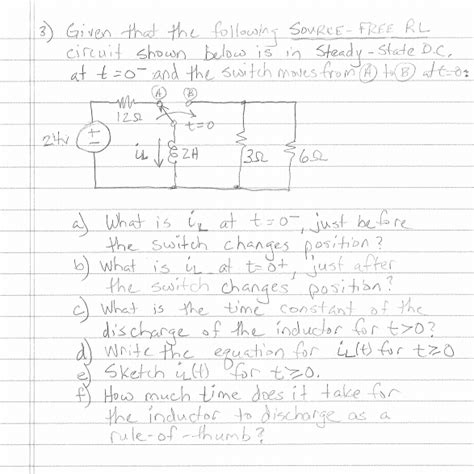 3) Given that the following SOURCE-FREE RL
circuit shown below is in Steady-State D.C.
at t=0⁻ and the switch moves from Ⓐ to Ⓑ at t=0:
Ⓐ Ⓑ
12Ω
t=0
24v
+
−
iL ↓
2H
3Ω
6Ω
a) What is iL at t=0⁻, just before
the switch changes position?
b) What is iL at t=0⁺, just after
the switch changes position?
c) What is the time constant of the
discharge of the inductor for t>0?
d) Write the equation for iL(t) for t≥0
e) Sketch iL(t) for t≥0.
f) How much time does it take for
the inductor to discharge as a
rule-of-thumb?